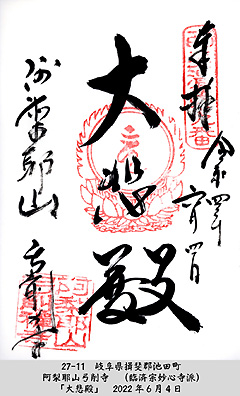 奉拝
令和四年
六月四日
大悲殿
阿梨耶山
弓削寺
27-11 岐阜県揖斐郡池田町
阿梨耶山弓削寺 (臨済宗妙心寺派)
「大悲殿」 2022年6月4日